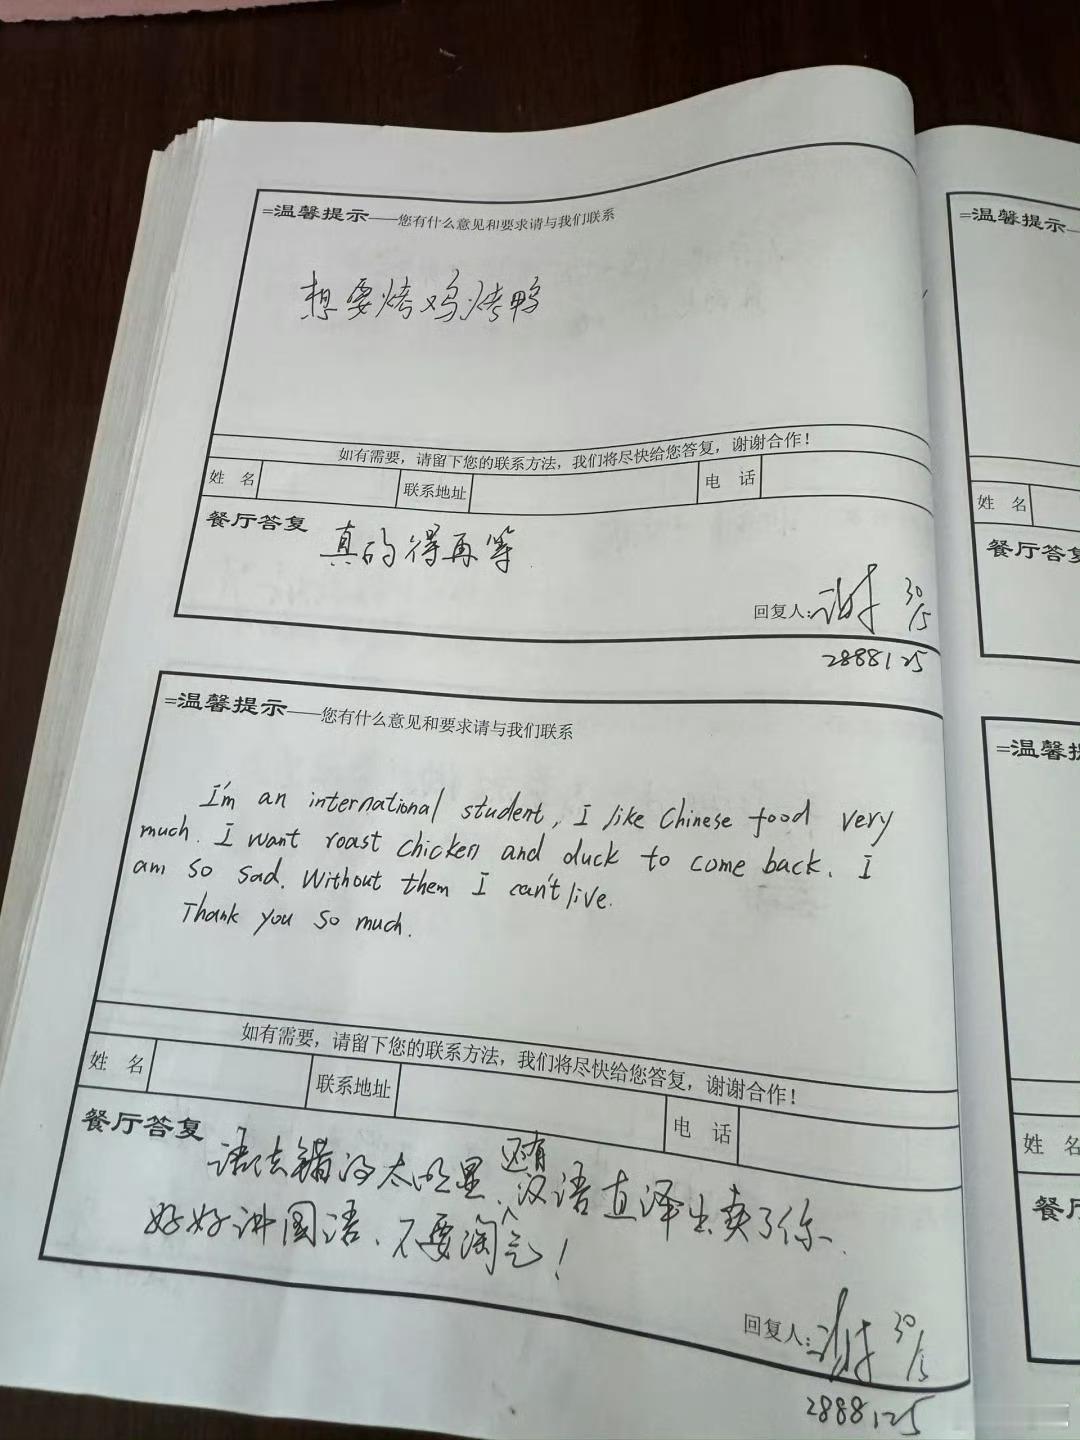 =温馨提示——您有什么意见和要求请与我们联系
想要烤鸡烤鸭
如有需要，请留下您的联系方法，我们将尽快给您答复，谢谢合作！
姓 名 联系地址 电 话
餐厅答复
真的得再等
回复人：谢 30/5
2888125
=温馨提示——您有什么意见和要求请与我们联系
I'm an international student, I like Chinese food very
much. I want roast chicken and duck to come back. I
am so sad. Without them I can't live.
Thank you so much.
如有需要，请留下您的联系方法，我们将尽快给您答复，谢谢合作！
姓 名 联系地址 电 话
餐厅答复
语法错的太明显、还有汉语直译出卖了你、
好好讲国语、不要淘气！
回复人：谢 30/5
2888125
=温馨提示—
姓 名
餐厅答复
=温馨提
姓 名
餐厅